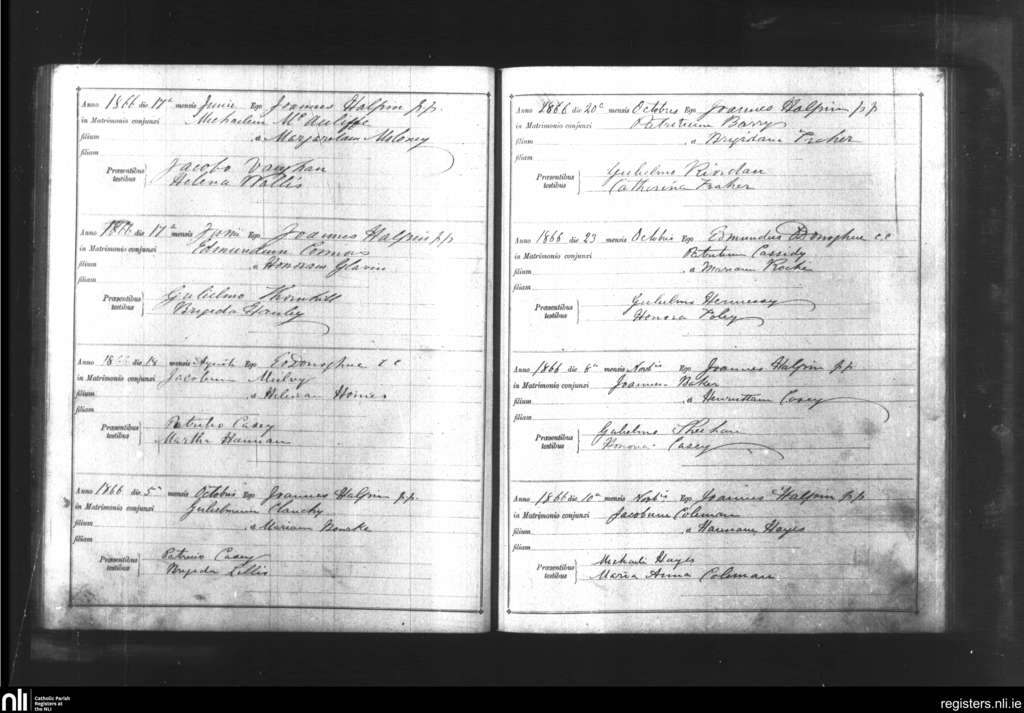 Anno 1866 die 17a mensis Junii Ego Joannes Halpin p.p.
in Matrimonio conjunxi Michaelem McAuliffe
filium a Margaretam Moloney
filiam
Præsentibus testibus
Jacobo Vaughan
Helena Wallis
Anno 1866 die 17a mensis Junii Ego Joannes Halpin p.p.
in Matrimonio conjunxi Edmundum Connors
filium a Honoram Glavin
filiam
Præsentibus testibus
Gulielmo Thornhill
Brigida Stanley
Anno 1866 die 14 mensis Ego E O'Donoghue c c
in Matrimonio conjunxi Jacobum
filium a Helenam
filiam
Præsentibus testibus
Patritio Casey
Martha Hannan
Anno 1866 die 5a mensis Octobris Ego Joannes Halpin p.p.
in Matrimonio conjunxi Gulielmum Clanchy
filium a Mariam
filiam
Præsentibus testibus
Patricio Casey
Brigida Lillis
Anno 1866 die 20a mensis Octobris Ego Joannes Halpin p.p.
in Matrimonio conjunxi Patritium Barry
filium a Brigidam Fraher
filiam
Præsentibus testibus
Gulielmo Riordan
Catherina Fraher
Anno 1866 die 23 mensis Octobris Ego Edmundus O'Donoghue c c
in Matrimonio conjunxi Patritium Cassidy
filium a Mariam Roche
filiam
Præsentibus testibus
Gulielmo Hennessy
Honora Foley
Anno 1866 die 6a mensis Novbris Ego Joannes Halpin p.p.
in Matrimonio conjunxi Joannem Baker
filium a Henriettam Casey
filiam
Præsentibus testibus
Gulielmo Sheehan
Honora Casey
Anno 1866 die 10a mensis Novbris Ego Joannes Halpin p.p.
in Matrimonio conjunxi Jacobum Coleman
filium a Hannam Hayes
filiam
Præsentibus testibus
Michaele Hayes
Maria Anna Coleman
nli Catholic Parish
Registers at
the NLI
registers.nli.ie